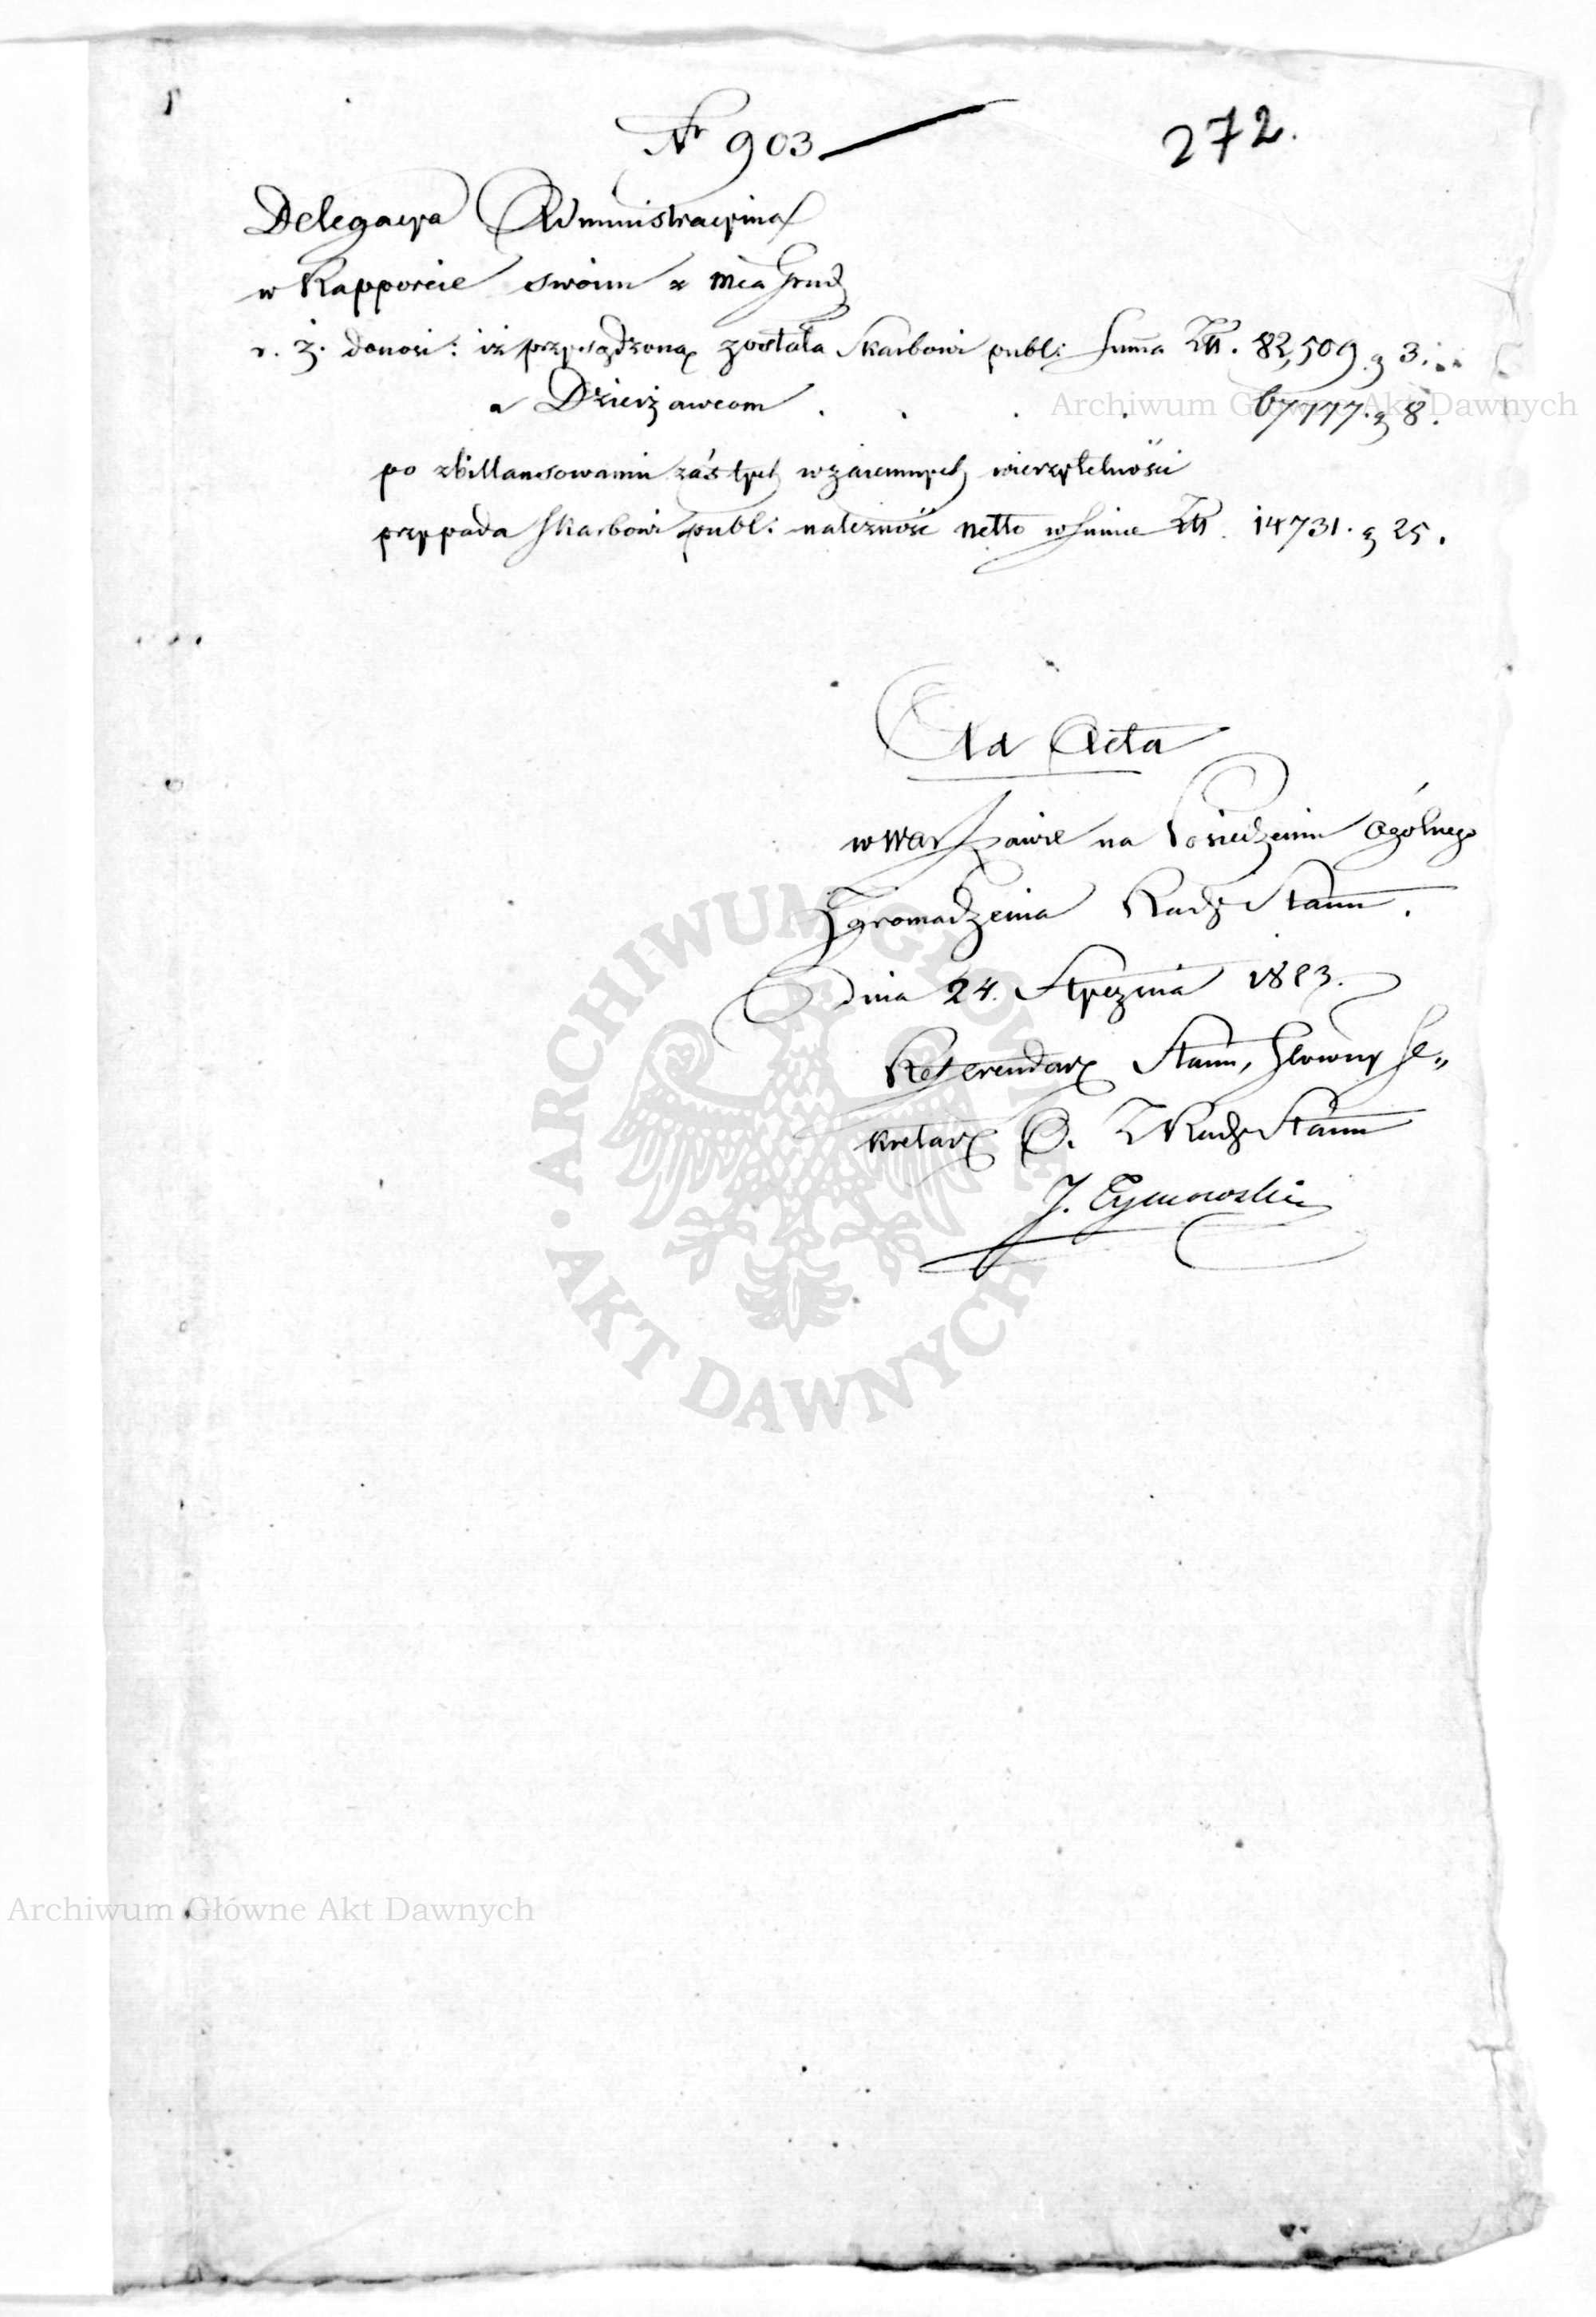 Nr 903
272.
Delegacya Administracyina
w Rapporcie swoim z Mca Grud
r. z. donosi: iż przysądzoną została Skarbowi publ: Summa Złł. 82,509. g 3.
a Dzierżawcom . . . . 67777. g 8.
po zbillansowaniu zaś tych wzaiemnych wierzytelności
przypada Skarbowi publ: należność netto w Summie Złł. 14731. g 25.
Ad Acta
w Warszawie na Posiedzeniu Ogólnego
Zgromadzenia Rady Stanu.
dnia 24. Stycznia 1823.
Referendarz Stanu, Główny Se„
kretarz O. Z Rady Stanu
J. Tymowski
Archiwum Główne Akt Dawnych
ARCHIWUM GŁÓWNE • AKT DAWNYCH •
Archiwum Główne Akt Dawnych